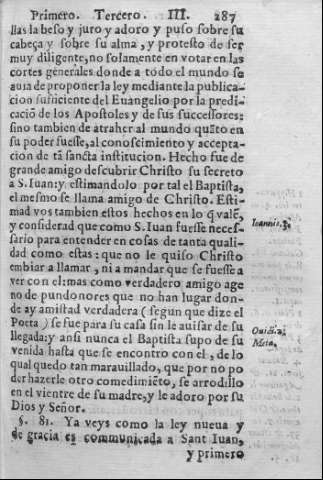 Primero. Tercero. III. 287
llas la beso y juro y adoro y puso sobre su
cabeça y sobre su alma, y protesto de ser
muy diligente, no solamente en votar en las
cortes generales donde a todo el mundo se
auia de proponer la ley mediante la publica-
cion suficiente del Euangelio por la predi-
caciõ de los Apostoles y de sus successores:
sino tambien de atraher al mundo quãto en
su poder fuesse, al conoscimiento y accepta-
cion de tã sancta institucion. Hecho fue de
grande amigo descubrir Christo su secreto
a S. Iuan: y estimandolo por tal el Baptista,
el mesmo se llama amigo de Christo. Esti-
mad vos tambien estos hechos en lo q̃ valẽ,
y considerad que como S. Iuan fuesse neces-
sario para entender en cosas de tanta quali-
dad como estas: que no le quiso Christo
embiar a llamar, ni a mandar que se fuesse a
ver con el: mas como verdadero amigo age
no de pundonores que no han lugar don-
de ay amistad verdadera (segun que dize el
Poeta) se fue para su casa sin le auisar de su
llegada: y ansi nunca el Baptista supo de su
venida hasta que se encontro con el, de lo
qual quedo tan marauillado, que por no po
der hazerle otro comedimiẽto, se arrodillo
en el vientre de su madre, y le adoro por su
Dios y Señor.
§. 81. Ya veys como la ley nueua y
de gracia es communicada a Sant Iuan,
y primero
Ioannis. 3.
Ouidi. 2.
Meta.